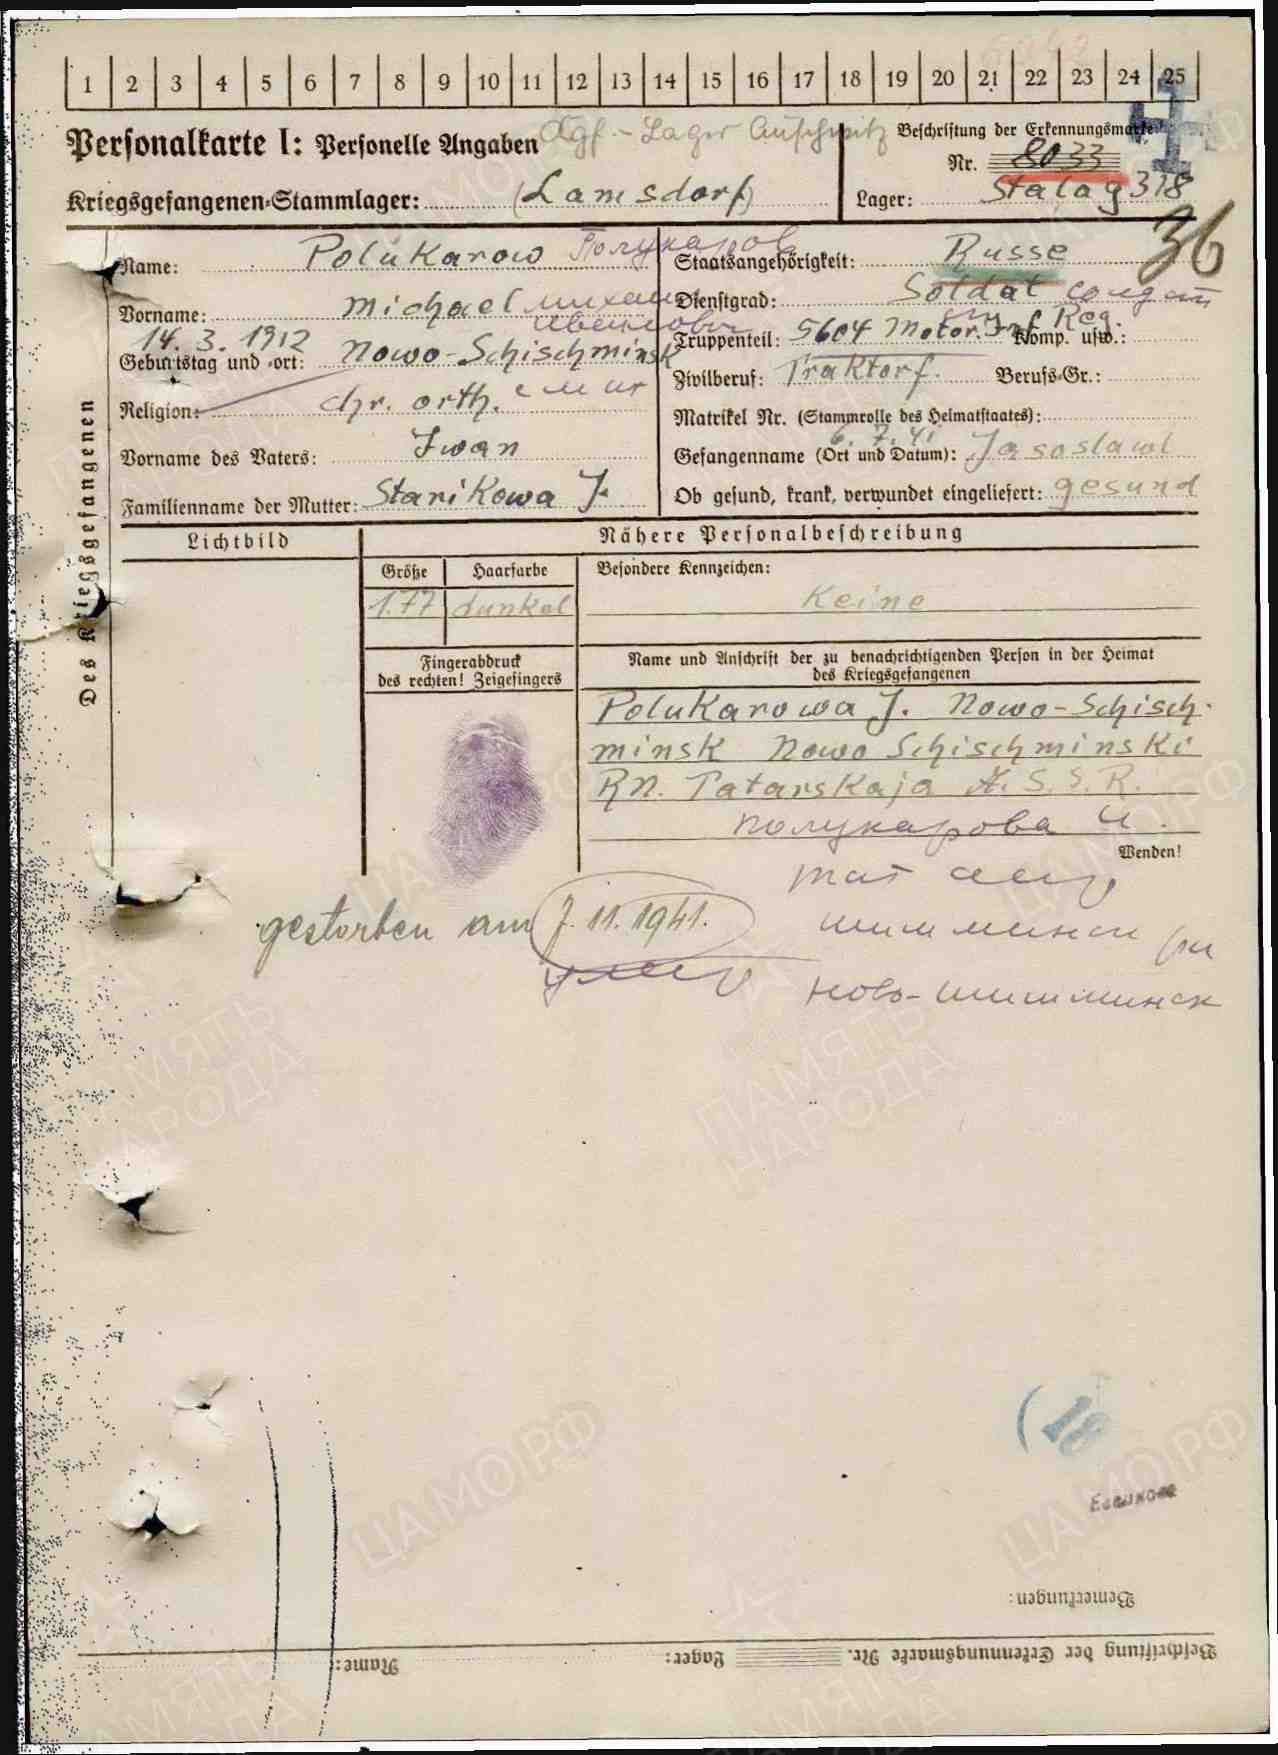 1 2 3 4 5 6 7 8 9 10 11 12 13 14 15 16 17 18 19 20 21 22 23 24 25
Personalkarte I: Personelle Angaben
Kgf.-Lager Auschwitz
Beschriftung der Erkennungsmarke
Nr. 8033
Kriegsgefangenen-Stammlager: (Lamsdorf)
Lager: Stalag 318
36
Des Kriegsgefangenen
Name: Polukarow Полукаров
Vorname: Michael Михаил
Иванович
14. 3. 1912
Geburtstag und -ort: Nowo-Schischminsk
Religion: chr. orth.
Vorname des Vaters: Iwan
Familienname der Mutter: Starikowa J.
Staatsangehörigkeit: Russe
Dienstgrad: Soldat солдат
Truppenteil: 5604 Motor. Inf. Reg. Komp. usw.:
Zivilberuf: Traktorf. Berufs-Gr.:
Matrikel Nr. (Stammrolle des Heimatstaates):
6. 7. 41
Gefangenname (Ort und Datum): Jasoslawl
Ob gesund, krank, verwundet eingeliefert: gesund
Lichtbild
Nähere Personalbeschreibung
Größe Haarfarbe Besondere Kennzeichen:
1.77 dunkel Keine
Fingerabdruck
des rechten! Zeigefingers
Name und Anschrift der zu benachrichtigenden Person in der Heimat
des Kriegsgefangenen
Polukarowa J. Nowo-Schisch-
minsk Nowo Schischminski
RN. Tatarskaja A.S.S.R.
Полукарова И.
Wenden!
Тат
gestorben am 7.11.1941.
умер
шишминск
ново-шишминск
Bemerkungen:
Beschriftung der Erkennungsmarke Nr. Lager: Name:
ЦАМО РФ
ПАМЯТЬ
НАРОДА